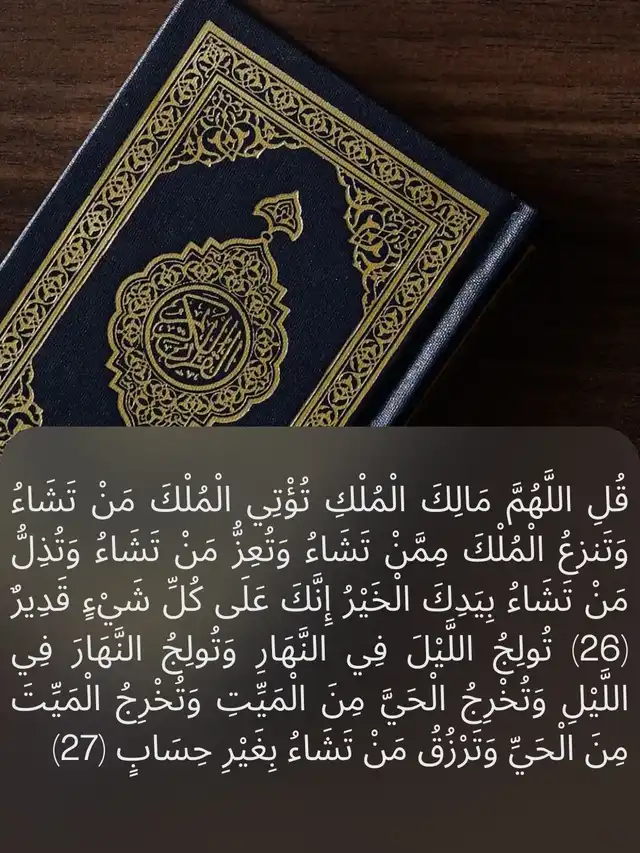 قُلِ اللَّهُمَّ مَالِكَ الْمُلْكِ تُؤْتِي الْمُلْكَ مَنْ تَشَاءُ
وَتَنزِعُ الْمُلْكَ مِمَّنْ تَشَاءُ وَتُعِزُّ مَنْ تَشَاءُ وَتُذِلُّ
مَنْ تَشَاءُ بِيَدِكَ الْخَيْرُ إِنَّكَ عَلَى كُلِّ شَيْءٍ قَدِيرٌ
(26) تُولِجُ اللَّيْلَ فِي النَّهَارِ وَتُولِجُ النَّهَارَ فِي
اللَّيْلِ وَتُخْرِجُ الْحَيَّ مِنَ الْمَيِّتِ وَتُخْرِجُ الْمَيِّتَ
مِنَ الْحَيِّ وَتَرْزُقُ مَنْ تَشَاءُ بِغَيْرِ حِسَابٍ (27)